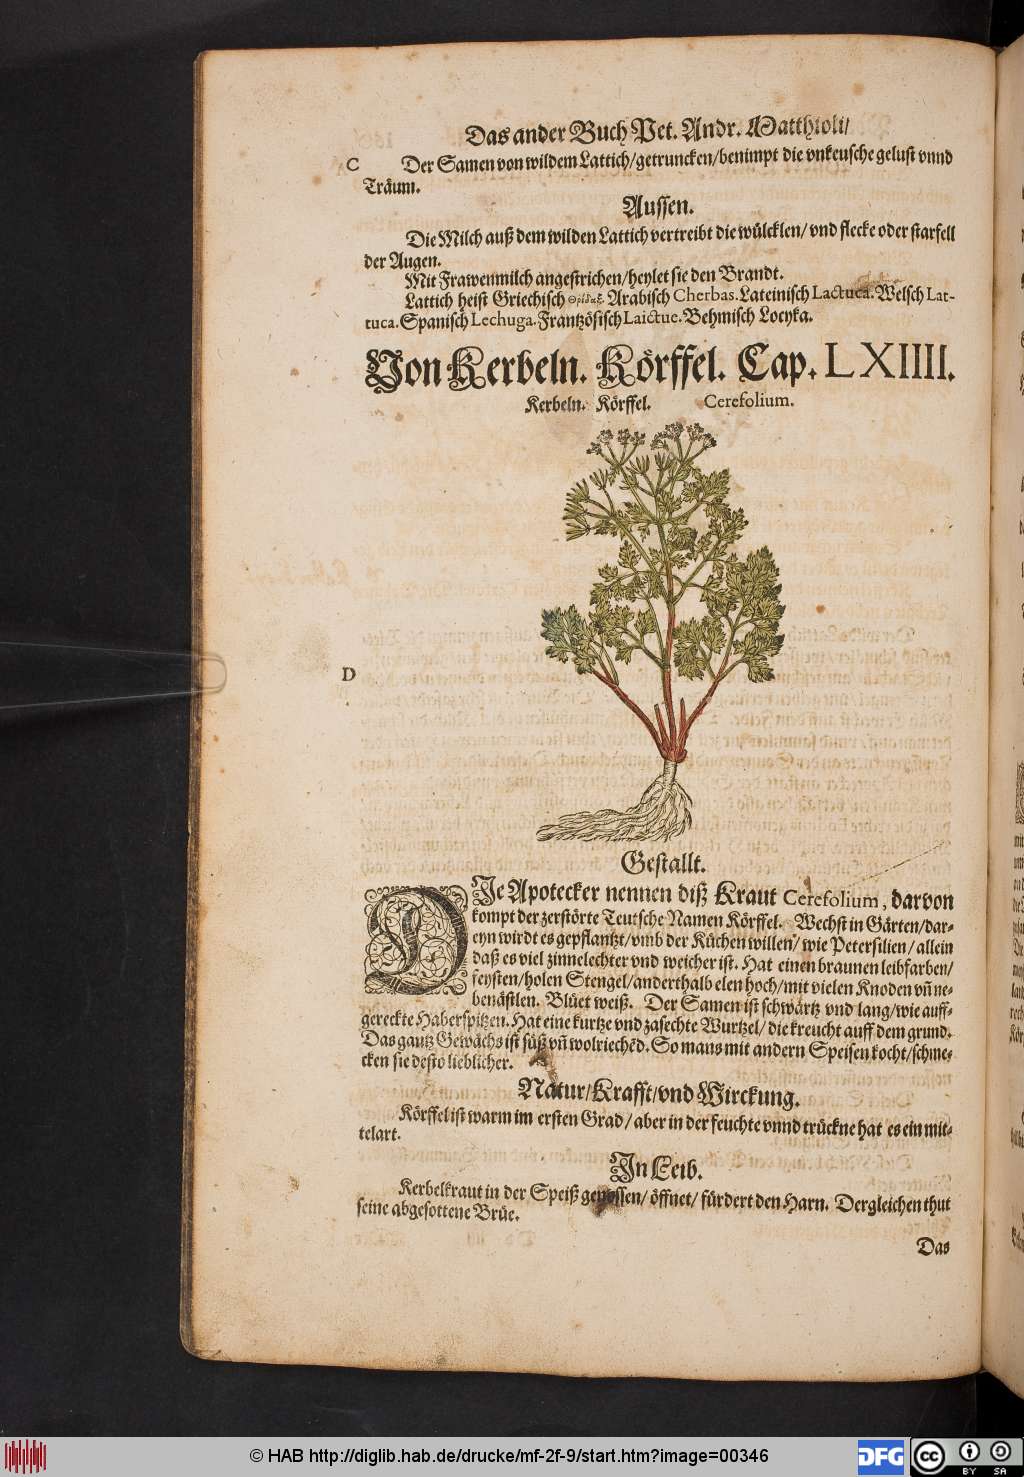 Das ander Buch Pet. Andr. Matthioli/
C Der Samen von wildem Lattich/getruncken/benimpt die vnkeusche gelust vnnd
Träum.
Aussen.
Die Milch auß dem wilden Lattich vertreibt die wülcklen/ vnd flecke oder starfell
der Augen.
Mit Frawenmilch angestrichen/heylet sie den Brandt.
Lattich heist Griechisch Θρίδαξ. Arabisch Cherbas. Lateinisch Lactuca. Welsch Lat-
tuca. Spanisch Lechuga. Frantzösisch Laictue. Behmisch Locyka.
Von Kerbeln. Körffel. Cap. LXIIII.
Kerbeln. Körffel. Cerefolium.
D
Gestallt.
DJe Apotecker nennen diß Kraut Cerefolium, darvon
kompt der zerstörte Teutsche Namen Körffel. Wechst in Gärten/dar-
eyn wirdt es gepflantzt/vmb der Küchen willen/ wie Petersilien/ allein
daß es viel zinnelechter vnd weicher ist. Hat einen braunen leibfarben/
feysten/holen Stengel/anderthalb elen hoch/mit vielen Knoden vñ ne-
benästlen. Blüet weiß. Der Samen ist schwärtz vnd lang/wie auff-
gereckte Haberspitzen. Hat eine kurtze vnd zasechte Wurtzel/ die kreucht auff dem grund.
Das gantz Gewächs ist süß vñ wolriechẽd. So mans mit andern Speisen kocht/schme-
cken sie desto lieblicher.
Natur/Krafft/vnd Wirckung.
Körffel ist warm im ersten Grad/ aber in der feuchte vnnd trückne hat es ein mit-
telart.
Jn Leib.
Kerbelkraut in der Speiß genossen/ öffnet/ fürdert den Harn. Dergleichen thut
seine abgesottene Brüe.
Das
© HAB http://diglib.hab.de/drucke/mf-2f-9/start.htm?image=00346
DFG
cc
BY SA